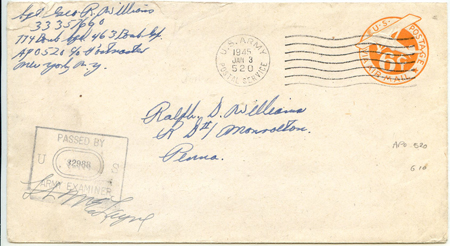 Sgt. Geo R. Williams
33351690
774 Bomb Sq. 463 Bomb Gp.
APO 520 c/o Postmaster
New York N.Y.
U.S. ARMY
1945
JAN 3
520
POSTAL SERVICE
U.S. POSTAGE
6¢
VIA AIR MAIL
Ralph D. Williams
R D #1 Monroeton.
Penna.
PASSED BY
U S
12988
ARMY EXAMINER
APO 520